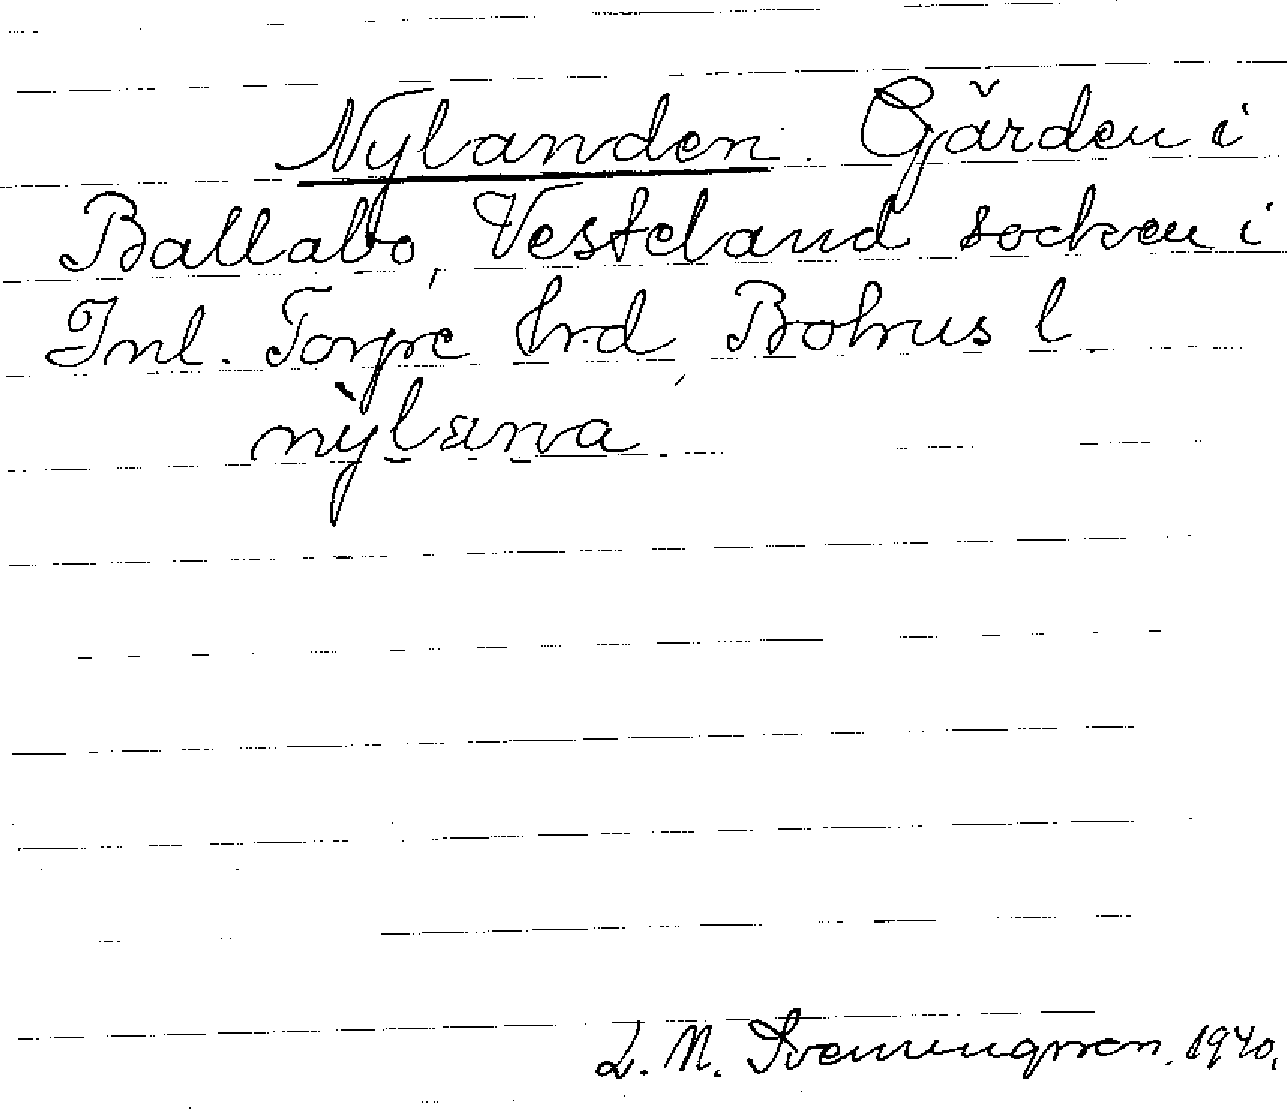 Nylanden. Gården i
Ballabo, Vesteland socken i
Inl. Torpe hrd, Bohus l.
nỳlana.
L. N. Svenungsson. 1940.